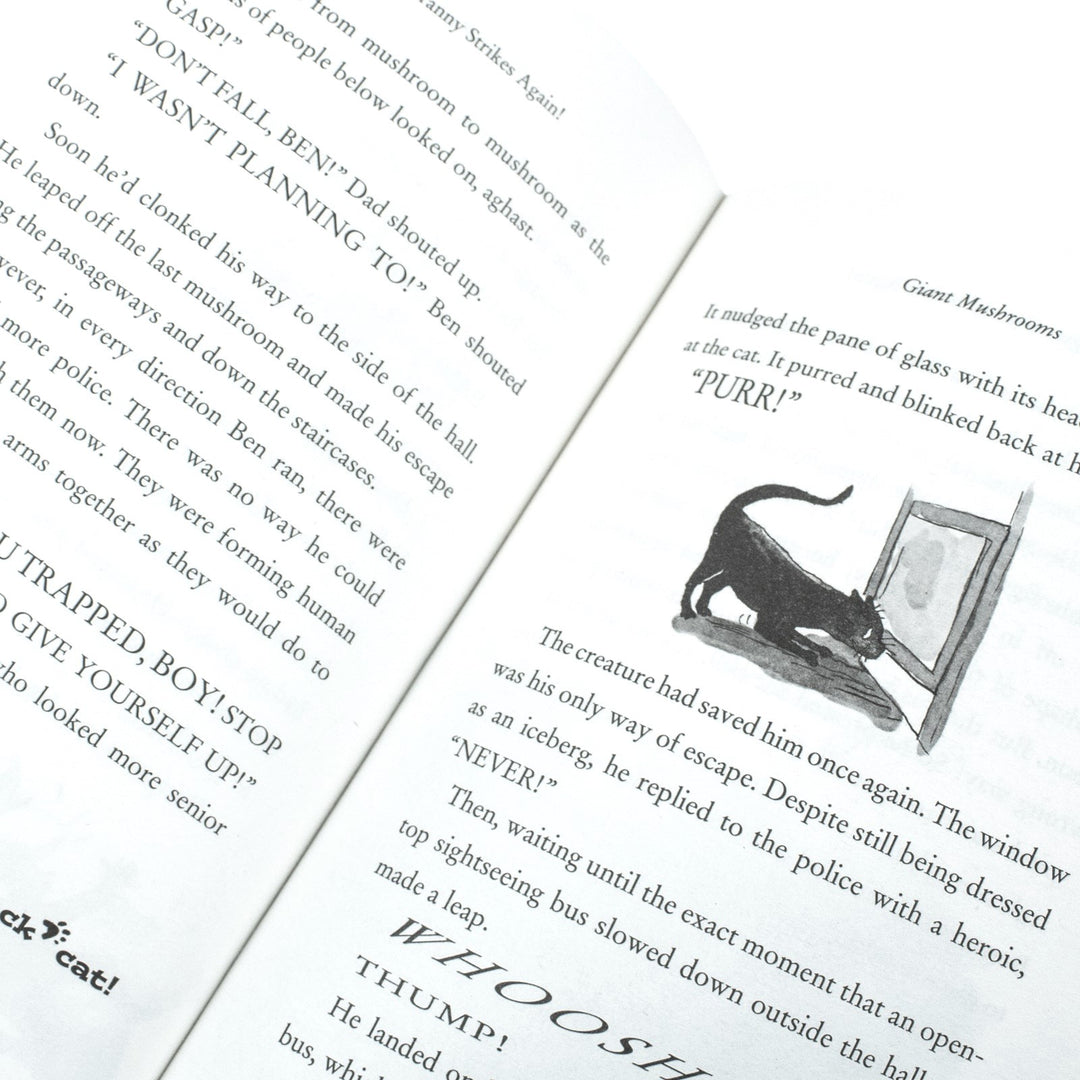 ranny Strikes Again!
from mushroom to mushroom as the
of people below looked on, aghast.
GASP!”
“DON’T FALL, BEN!” Dad shouted up.
“I WASN’T PLANNING TO!” Ben shouted
down.
Soon he’d clonked his way to the side of the hall.
He leaped off the last mushroom and made his escape
the passageways and down the staircases.
in every direction Ben ran, there were
more police. There was no way he could
them now. They were forming human
arms together as they would do to
TRAPPED, BOY! STOP
GIVE YOURSELF UP!”
who looked more senior
ck cat!
Giant Mushrooms
It nudged the pane of glass with its
at the cat. It purred and blinked back at
“PURR!”
The creature had saved him once again. The window
was his only way of escape. Despite still being dressed
as an iceberg, he replied to the police with a heroic,
“NEVER!”
Then, waiting until the exact moment that an open-
top sightseeing bus slowed down outside the hall
made a leap.
WHOOSH
THUMP!
He landed
bus,